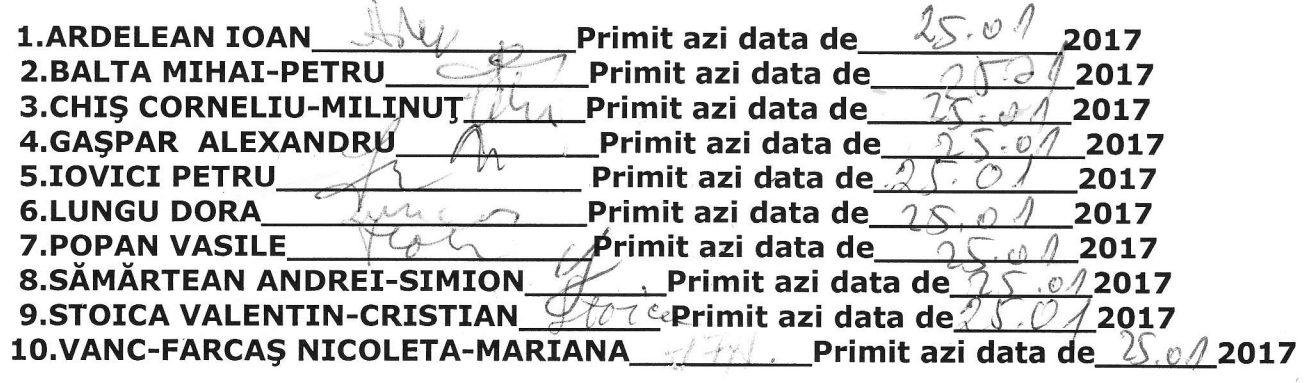 1.ARDELEAN IOAN Primit azi data de 25.01 2017
2.BALTA MIHAI-PETRU Primit azi data de 25.01 2017
3.CHIŞ CORNELIU-MILINUŢ Primit azi data de 25.01 2017
4.GAŞPAR ALEXANDRU Primit azi data de 25.01 2017
5.IOVICI PETRU Primit azi data de 25.01 2017
6.LUNGU DORA Primit azi data de 25.01 2017
7.POPAN VASILE Primit azi data de 25.01 2017
8.SĂMĂRTEAN ANDREI-SIMION Primit azi data de 25.01 2017
9.STOICA VALENTIN-CRISTIAN Stoica Primit azi data de 25.01 2017
10.VANC-FARCAŞ NICOLETA-MARIANA Primit azi data de 25.01 2017